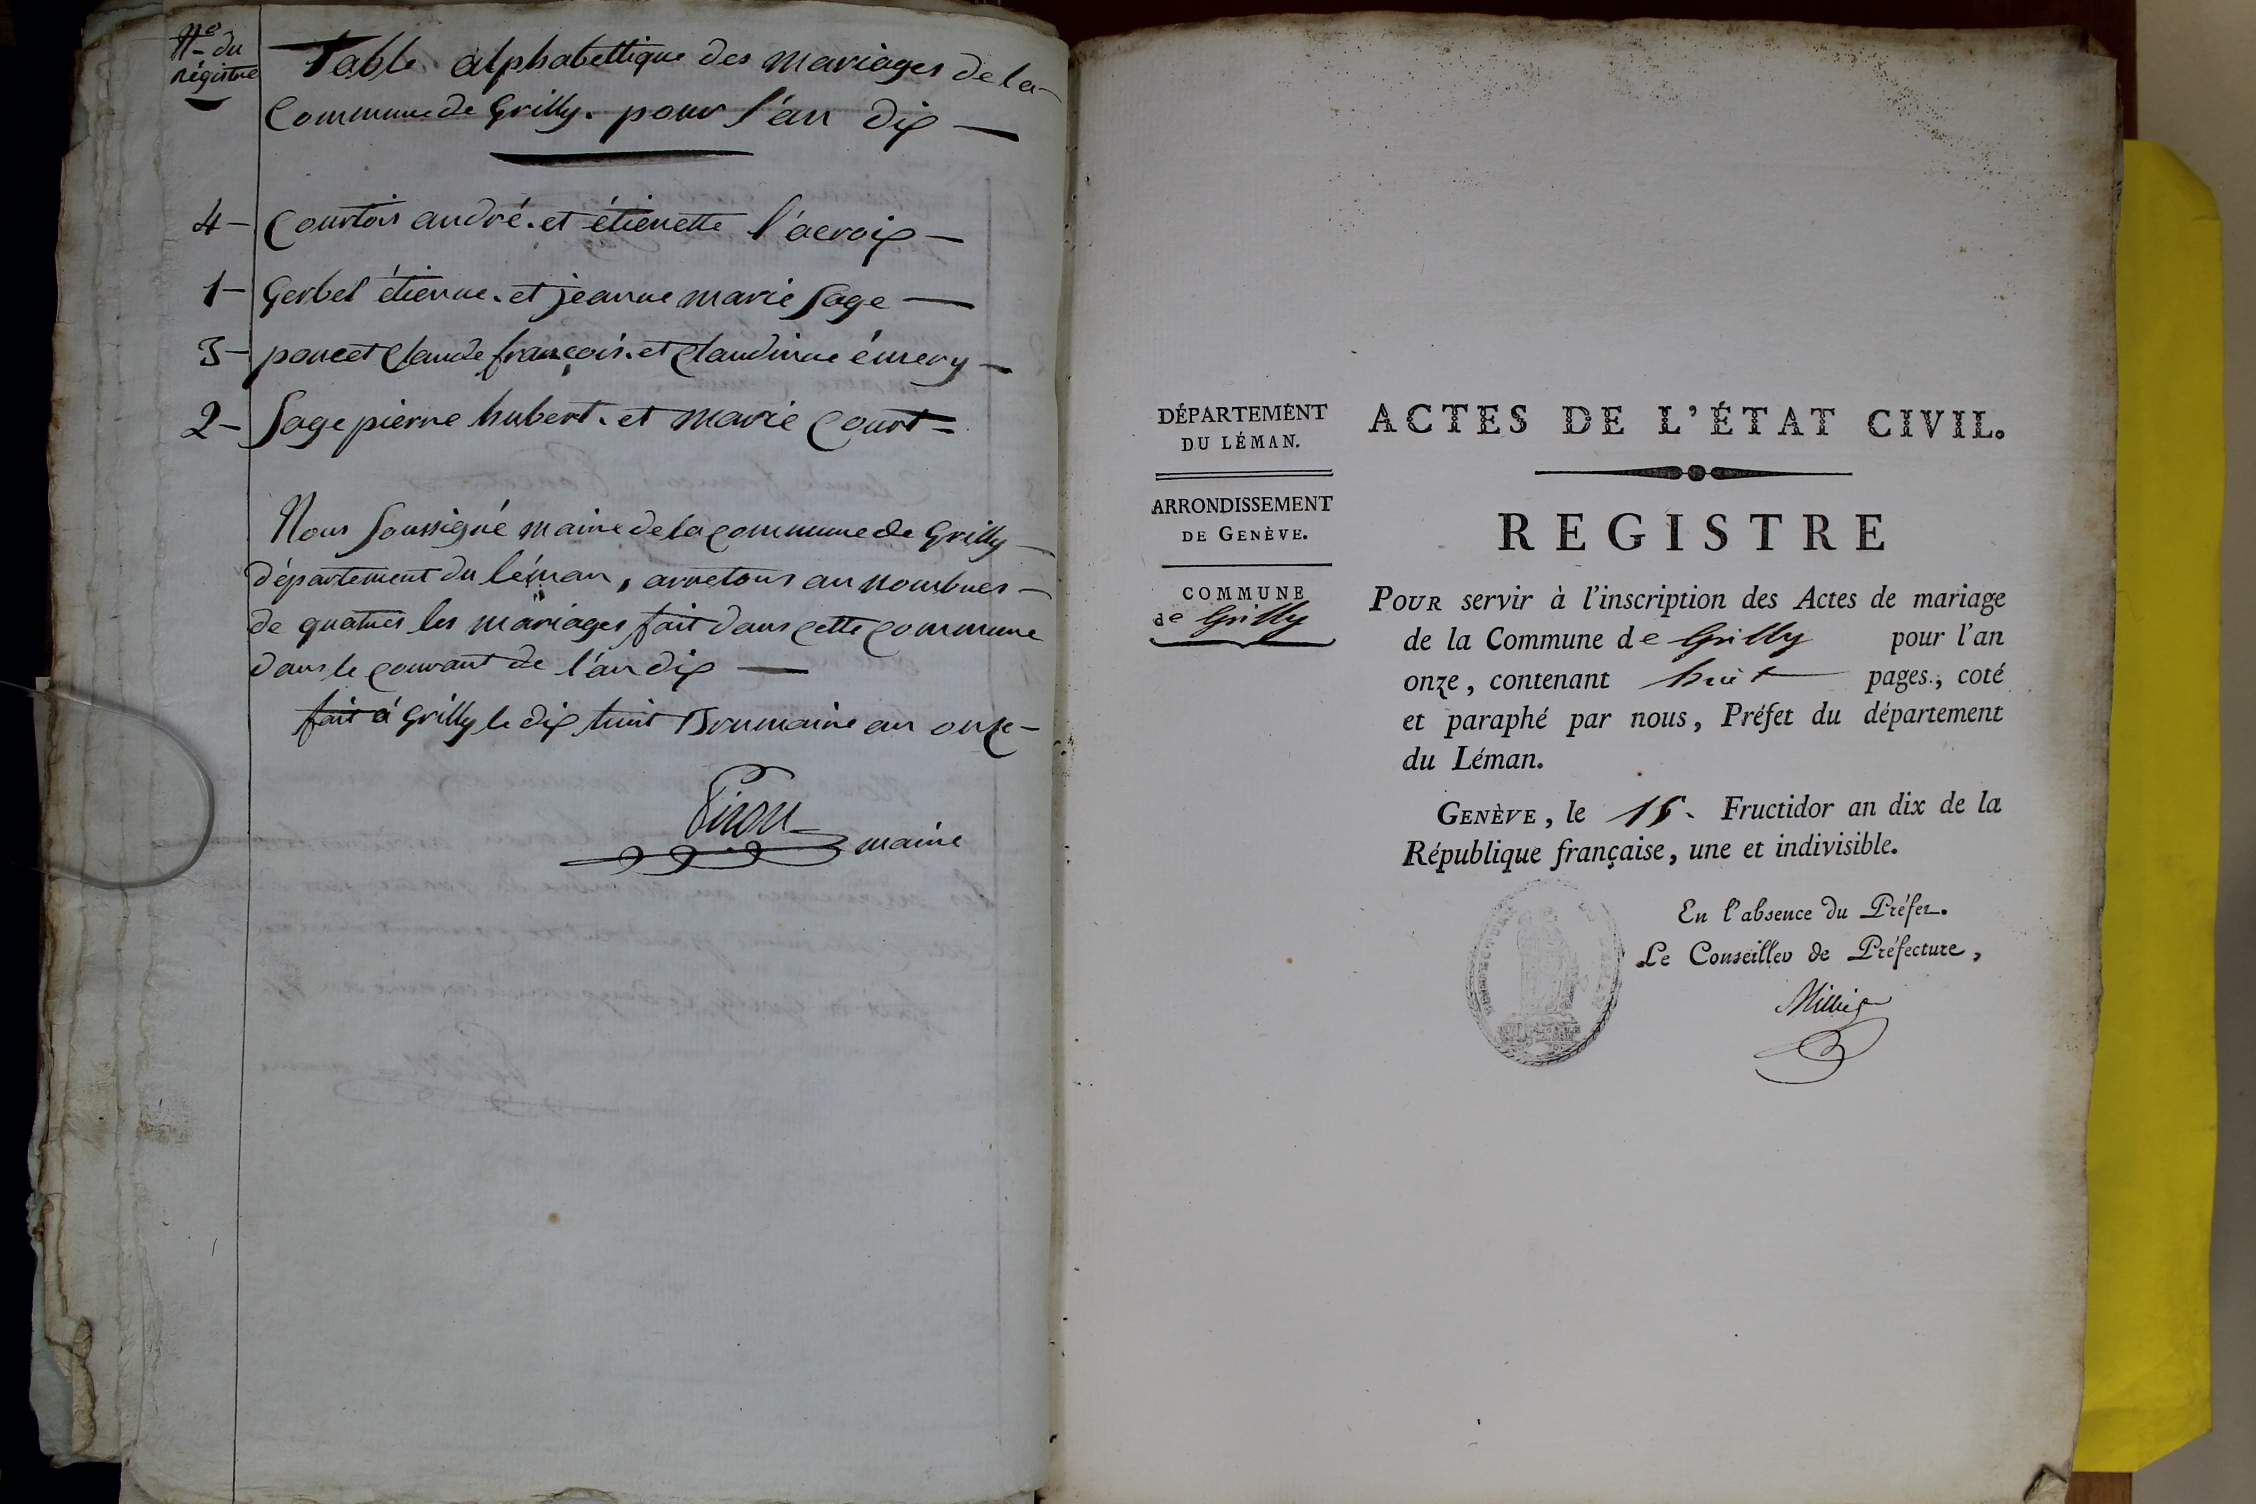 No du
régistre
Table alphabettique des mariages de la
Commune de Grilly. pour l'an dix
4 - Courtois andré. et étienette l'acroix
1 - Gerbel étienne. et jeanne marie Sage
3 - poncet Claude françois. et Claudinne émery
2 - Sage pierre hubert. et marie Court
Nous soussigné maire de la commune de Grilly
département du léman, arretons au nombres
de quatres les mariages fait dans cette commune
dans le courant de l'an dix
fait à Grilly le dix huit Brumaire an onze
maire
DÉPARTEMENT
DU LÉMAN.
ARRONDISSEMENT
DE GENÈVE.
COMMUNE
de Grilly
ACTES DE L'ÉTAT CIVIL.
REGISTRE
POUR servir à l'inscription des Actes de mariage
de la Commune de Grilly pour l'an
onze, contenant huit pages, coté
et paraphé par nous, Préfet du département
du Léman.
GENÈVE, le 15. Fructidor an dix de la
République française, une et indivisible.
En l'absence du Préfet.
Le Conseiller de Préfecture,